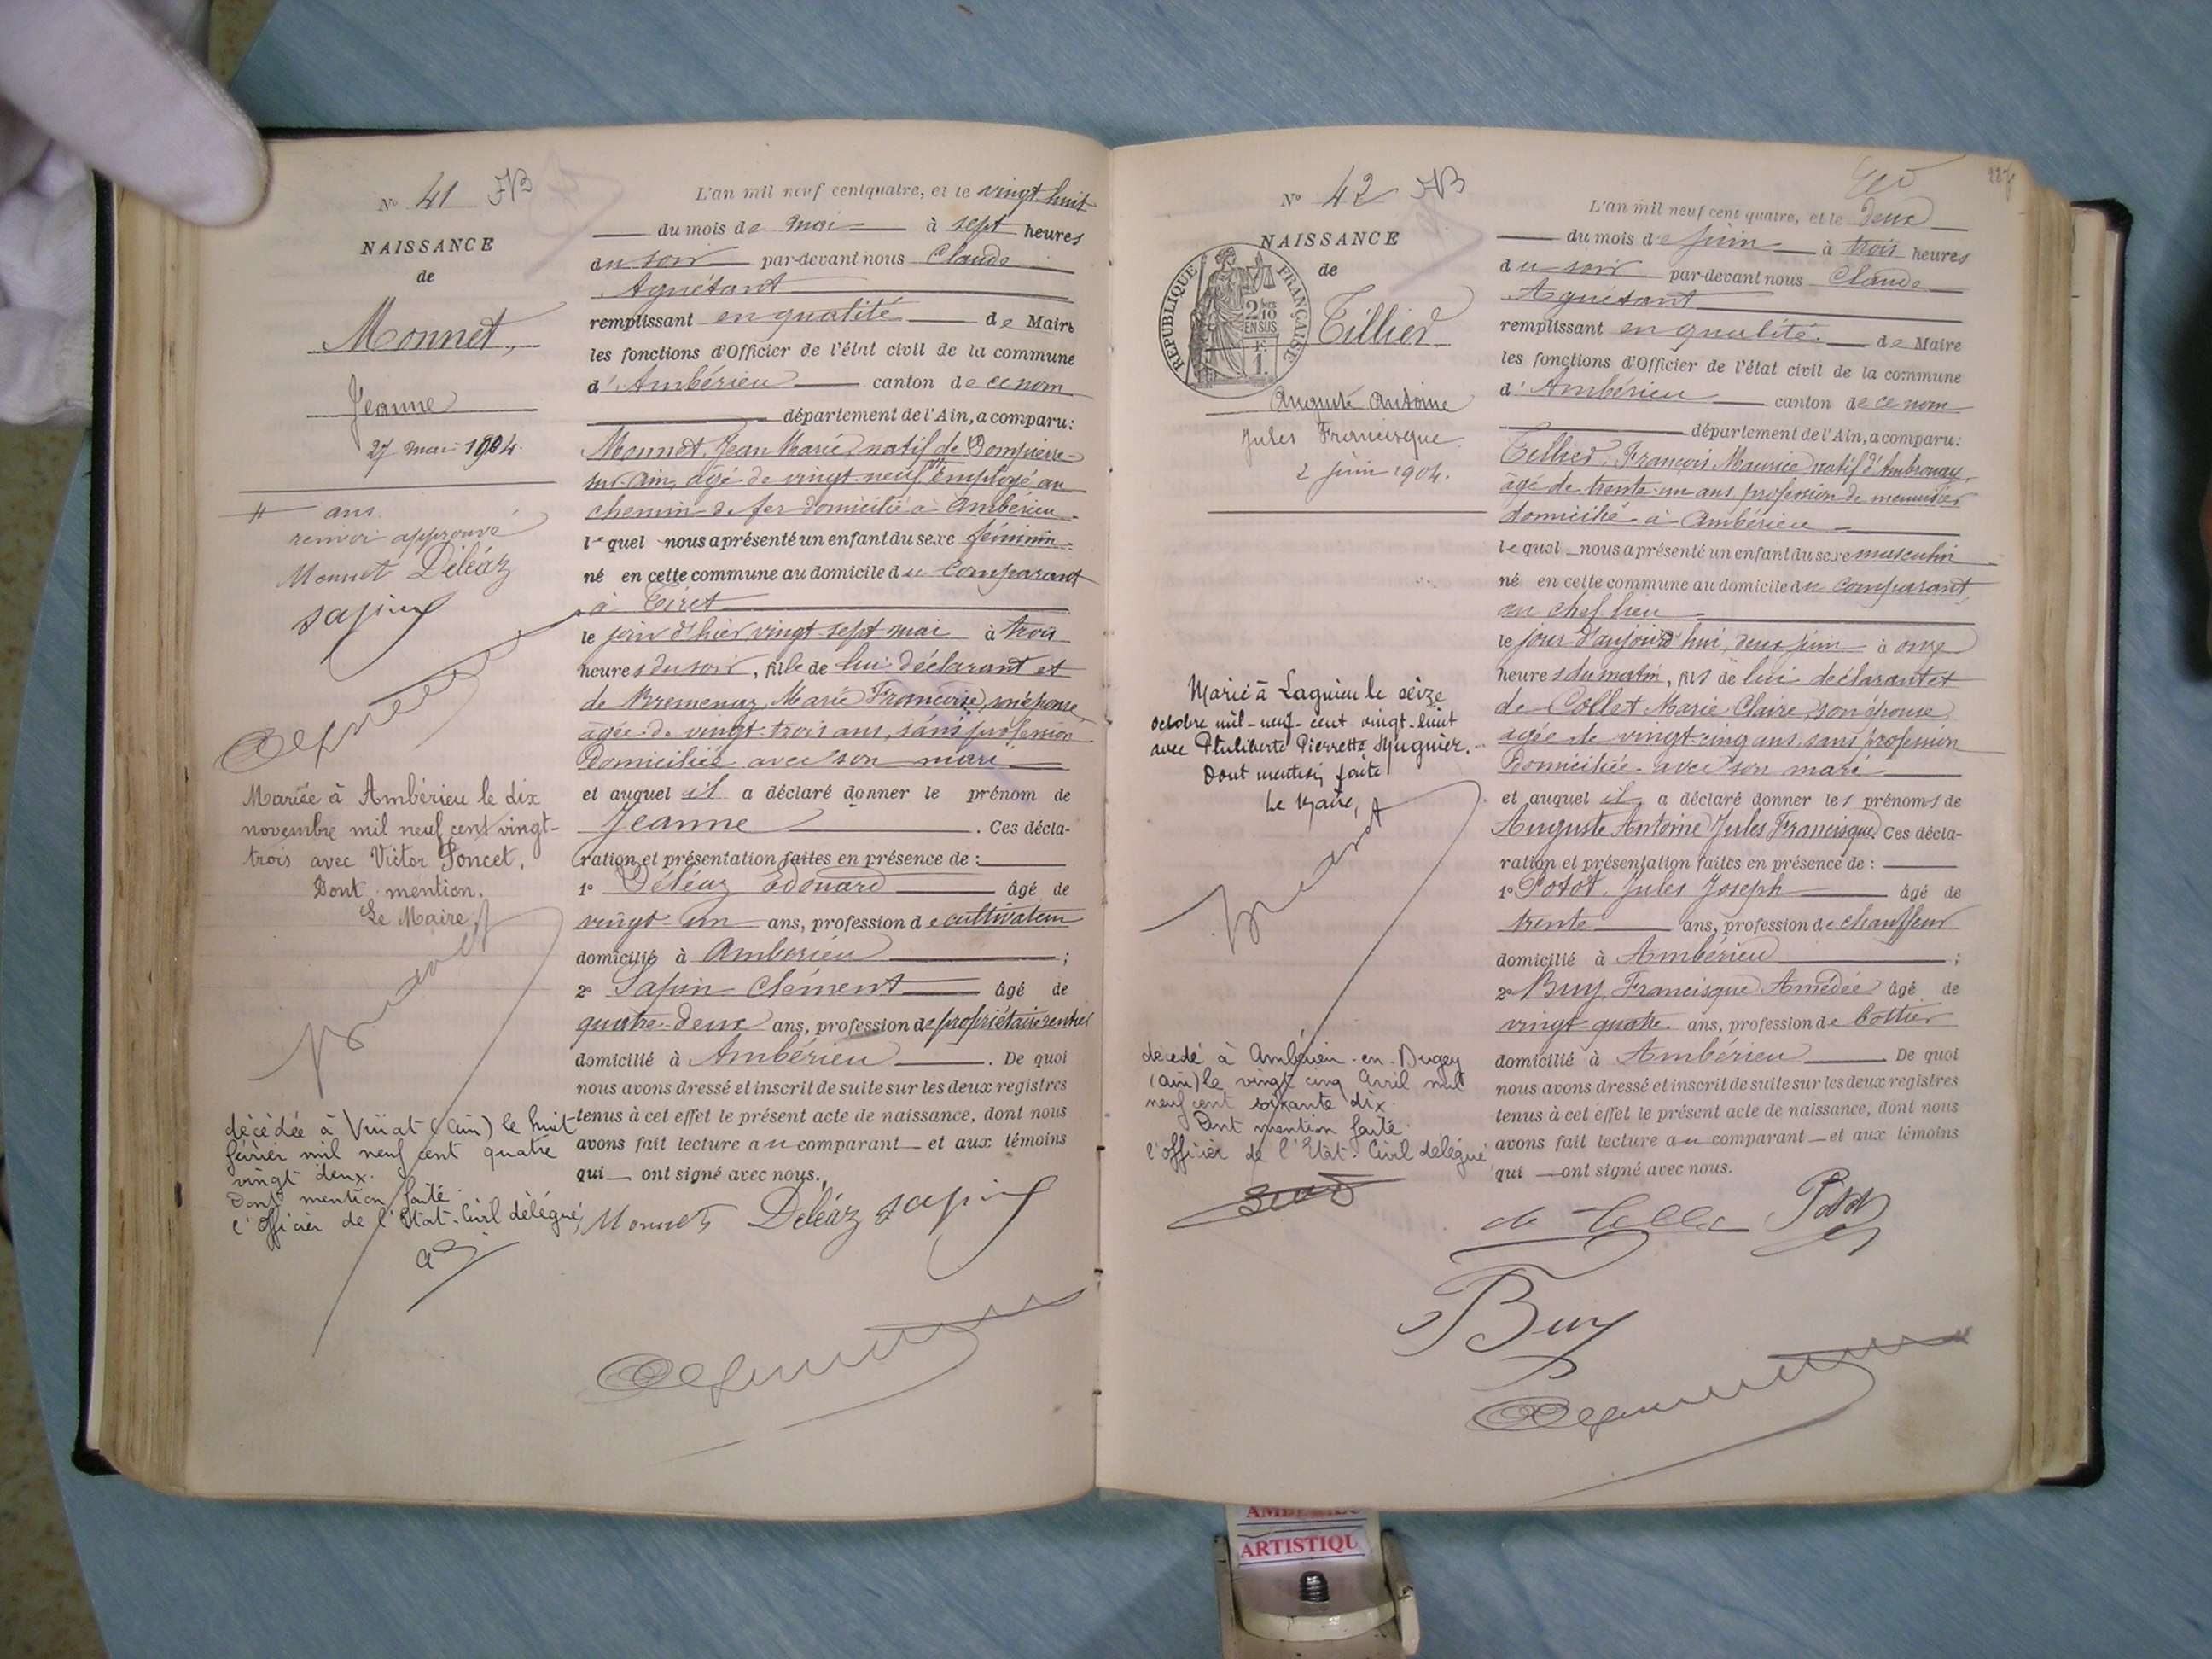 N° 41
NAISSANCE
de
Monnet,
Jeanne
27 mai 1904.
# ans
renvoi approuvé
Monnet Déléaz
Sapin
Mariée à Ambérieu le dix
novembre mil neuf cent vingt-
trois avec Victor Poncet.
Dont mention.
Le Maire,
décédée à Viriat (Ain) le huit
février mil neuf cent quatre
vingt deux.
Dont mention faite.
l'Officier de l'Etat-Civil délégué,
L'an mil neuf cent quatre, et le vingt huit
du mois de mai à sept heures
du soir par-devant nous Claude
Aguétant
remplissant en qualité de Maire
les fonctions d'Officier de l'état civil de la commune
d'Ambérieu canton de ce nom
département de l'Ain, a comparu:
Monnet, Jean Marie, natif de Dompierre-
sur-Ain, âgé de vingt neuf # employé au
chemin de fer domicilié à Ambérieu
lequel nous a présenté un enfant du sexe féminin
né en cette commune au domicile du comparant
à Tiret
le jour d'hier vingt-sept mai à trois
heures du soir, fille de lui déclarant et
de Bremenaz, Marie Françoise, son épouse,
âgée de vingt-trois ans, sans profession
domiciliée avec son mari
et auquel il a déclaré donner le prénom de
Jeanne . Ces décla-
ration et présentation faites en présence de :
1° Déléaz Edouard âgé de
vingt-un ans, profession de cultivateur
domicilié à Ambérieu ;
2° Sapin Clément âgé de
quatre-deux ans, profession de propriétaire rentier
domicilié à Ambérieu . De quoi
nous avons dressé et inscrit de suite sur les deux registres
tenus à cet effet le présent acte de naissance, dont nous
avons fait lecture au comparant et aux témoins
qui ont signé avec nous.
Monnet Déléaz Sapin
N° 42
NAISSANCE
de
RÉPUBLIQUE FRANÇAISE
2/10
EN SUS
F.
1.
Tillier
Auguste Antoine
Jules Francisque
2 juin 1904.
Marié à Lagnieu le seize
octobre mil-neuf-cent vingt-huit
avec Philiberte Pierrette Huguier.
Dont mention faite
Le Maire,
décédé à Ambérieu-en-Bugey
(Ain) le vingt cinq Avril mil
neuf cent soixante dix.
Dont mention faite.
l'officier de l'Etat-Civil délégué
L'an mil neuf cent quatre, et le deux
du mois de juin à trois heures
du soir par-devant nous Claude
Aguétant
remplissant en qualité de Maire
les fonctions d'Officier de l'état civil de la commune
d'Ambérieu canton de ce nom
département de l'Ain, a comparu:
Tillier, François Maurice, natif d'Ambronay,
âgé de trente-un ans, profession de menuisier
domicilié à Ambérieu
lequel nous a présenté un enfant du sexe masculin
né en cette commune au domicile du comparant,
au chef lieu
le jour d'aujourd'hui, deux juin à onze
heures du matin, fils de lui déclarant et
de Collet Marie Claire, son épouse,
âgée de vingt-cinq ans, sans profession
domiciliée avec son mari
et auquel il a déclaré donner les prénoms de
Auguste Antoine Jules Francisque. Ces décla-
ration et présentation faites en présence de :
1° Potot, Jules Joseph âgé de
trente ans, profession de chauffeur
domicilié à Ambérieu ;
2° Buy, Francisque Amédée âgé de
vingt-quatre ans, profession de bottier
domicilié à Ambérieu De quoi
nous avons dressé et inscrit de suite sur les deux registres
tenus à cet effet le présent acte de naissance, dont nous
avons fait lecture au comparant et aux témoins
qui ont signé avec nous.
Potot
Buy
ARTISTIQU